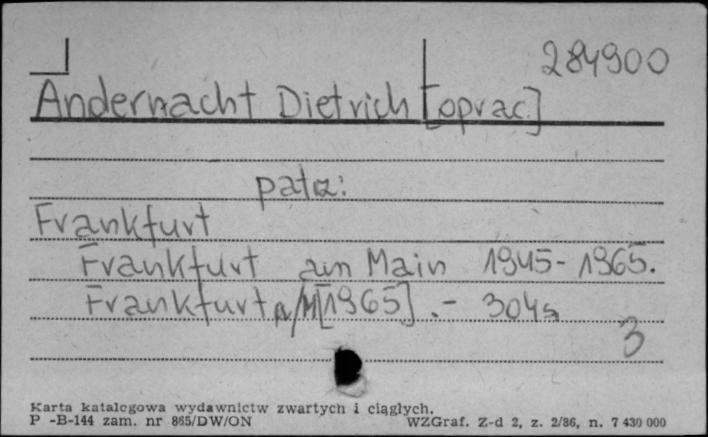 284900
Andernacht Dietrich [oprac.]
patrz:
Frankfurt
Frankfurt am Main 1945-1965.
Frankfurt a/M [1965] .- 304s
3
Karta katalogowa wydawnictw zwartych i ciągłych.
P -B-144 zam. nr 865/DW/ON WZGraf. Z-d 2, z. 2/86, n. 7 430 000